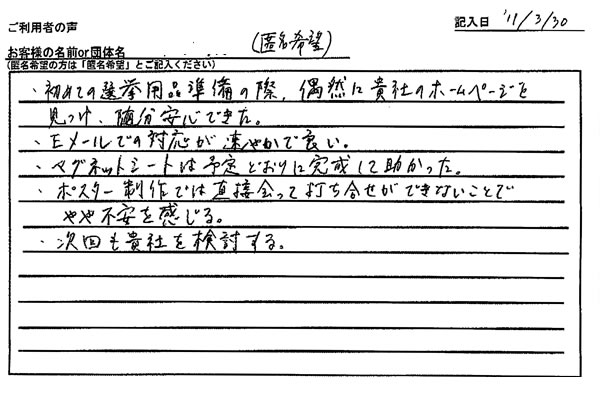 ご利用者の声
記入日 '11/3/30
お客様の名前or団体名 (匿名希望)
(匿名希望の方は「匿名希望」とご記入ください)
・初めての選挙用品準備の際、偶然に貴社のホームページを
見つけ、随分安心できた。
・Eメールでの対応が速やかで良い。
・マグネットシートは予定どおりに完成して助かった。
・ポスター制作では直接会って打ち合せができないことで
やや不安を感じる。
・次回も貴社を検討する。